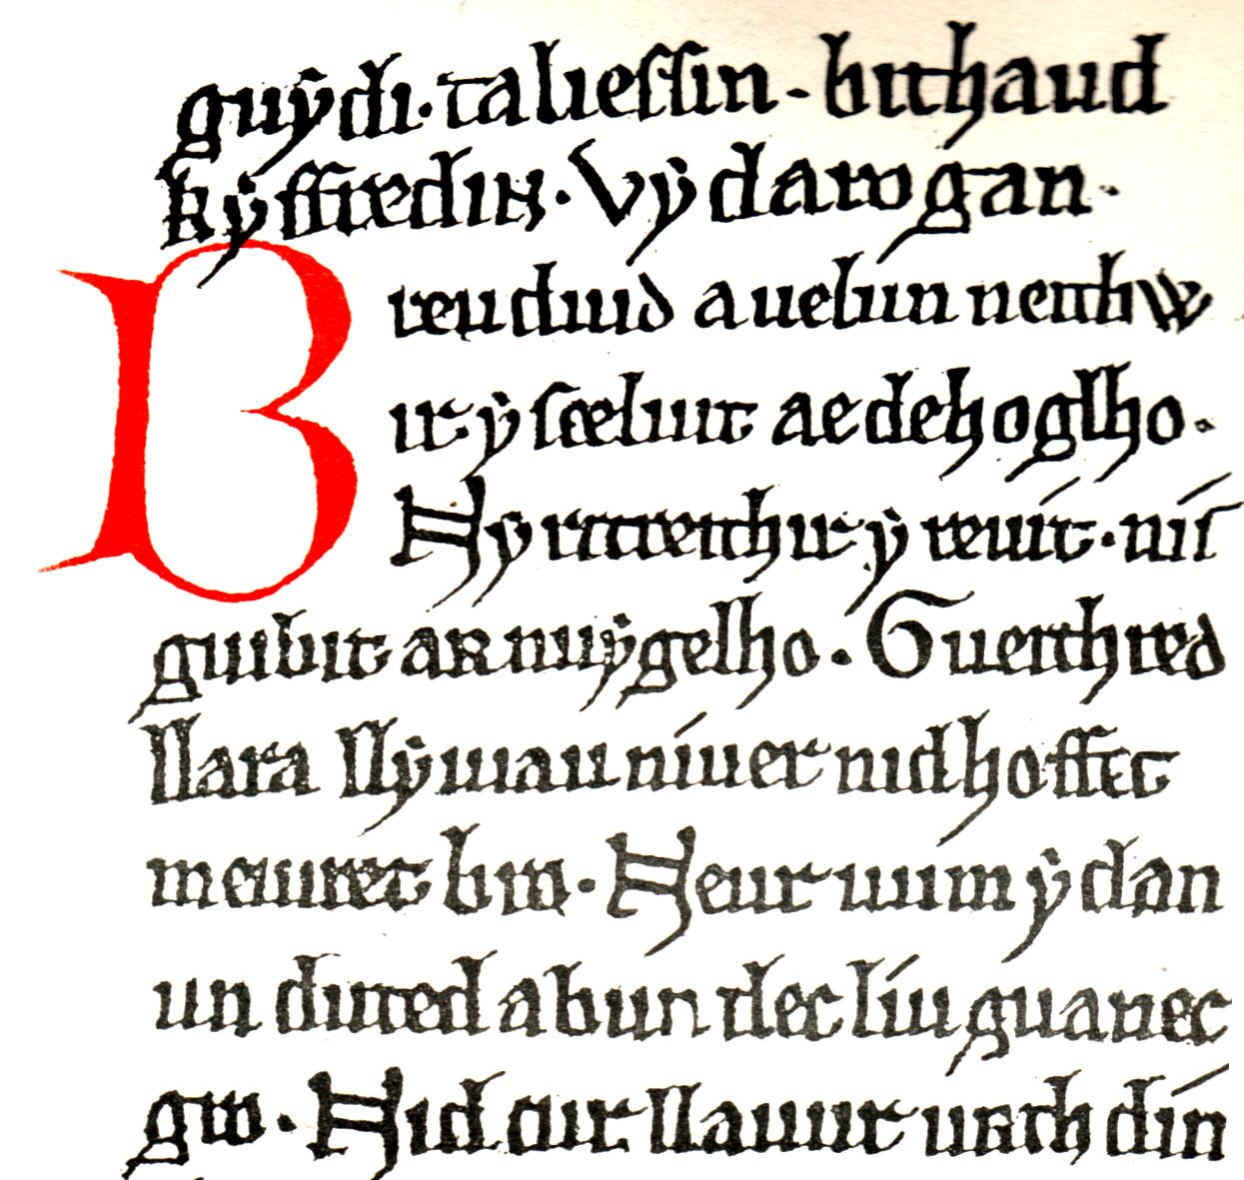 guẏdi. talieſſin . bithaud
kẏffredin. vẏ darogan.
Breuduid a uelun neithw
ir ẏſ celuit ae dehoglho.
Nẏ ritreithir ẏ reuit. niſ
guibit ar nuẏ gelho. Gueithred
llara llẏuiau niuer nid hoffet
meuret bro. Neur uum ẏ dan
un duted a bun dec liu guanec
gro. Nid eur llauur urth din